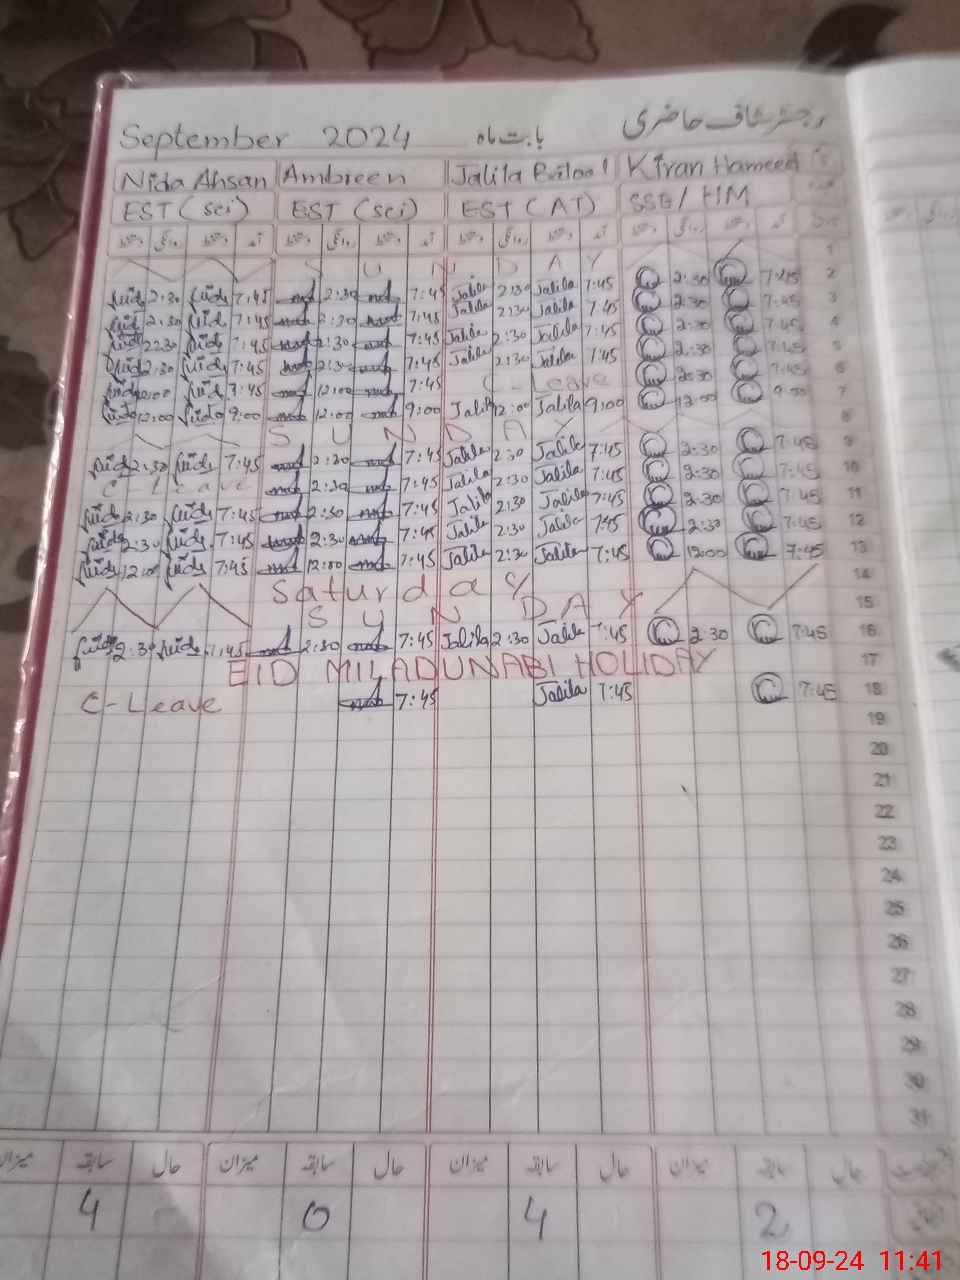 September 2024 بابت ماہ رجسٹر سٹاف حاضری
Nida Ahsan Ambreen Jalila Kiran Hameed
EST (sci) EST (sci) EST (AT) SSE/HM
1
S U N D A Y
2:30 7:45 2:30 7:45 Jalila 2:30 Jalila 7:45 2:30 7:45 2
2:30 7:45 2:30 7:45 Jalila 2:30 Jalila 7:45 2:30 7:45 3
7:45 2:30 7:45 Jalila 2:30 Jalila 7:45 2:30 7:45 4
2:30 7:45 2:30 7:45 Jalila 2:30 Jalila 7:45 2:30 7:45 5
7:45 12:00 7:45 C-Leave 7:45 6
12:00 9:00 12:00 9:00 Jalila 12:00 Jalila 9:00 12:00 9:00 7
S U N D A Y 8
2:30 7:45 2:30 7:45 Jalila 2:30 Jalila 7:45 2:30 7:45 9
C-Leave 2:30 7:45 Jalila 2:30 Jalila 7:45 2:30 7:45 10
2:30 7:45 2:30 7:45 Jalila 2:30 Jalila 7:45 2:30 7:45 11
2:30 7:45 2:30 7:45 Jalila 2:30 Jalila 7:45 2:30 7:45 12
12:00 7:45 12:00 7:45 Jalila 2:30 Jalila 7:45 12:00 7:45 13
Saturday 14
S U N D A Y 15
2:30 7:45 2:30 7:45 Jalila 2:30 Jalila 7:45 2:30 7:45 16
EID MILADUNABI HOLIDAY 17
C-Leave 7:45 Jalila 7:45 7:45 18
19
20
21
22
23
24
25
26
27
28
29
30
31
میزان سابقہ حال میزان سابقہ حال میزان سابقہ حال میزان سابقہ حال
4 0 4 2
18-09-24 11:41